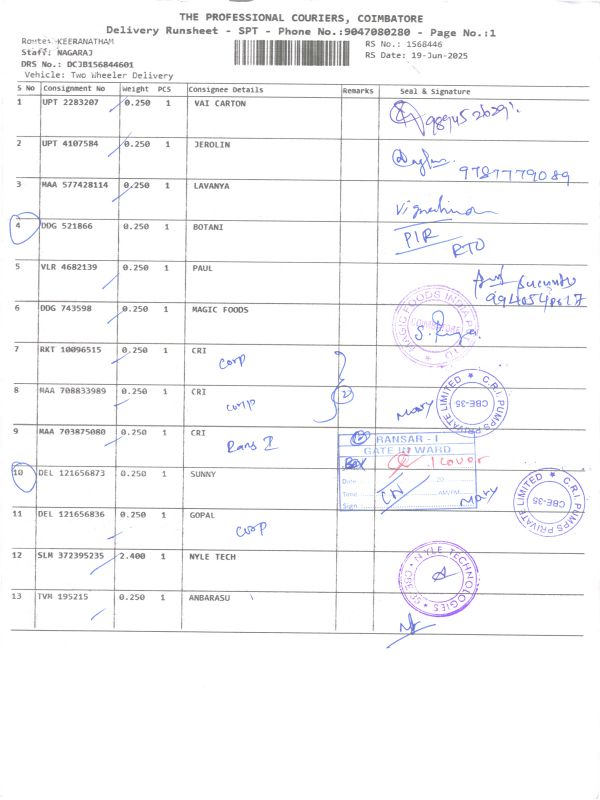 THE PROFESSIONAL COURIERS, COIMBATORE
Delivery Runsheet - SPT - Phone No.:9047080280 - Page No.:1
Route: KEERANATHAM
RS No.: 1568446
Staff: NAGARAJ
RS Date: 19-Jun-2025
DRS No.: DCJB156844601
Vehicle: Two Wheeler Delivery
S No Consignment No Weight PCS Consignee Details Remarks Seal & Signature
1 UPT 2283207 0.250 1 VAI CARTON
2 UPT 4107584 0.250 1 JEROLIN
9787779089
3 MAA 577428114 0.250 1 LAVANYA
4 DDG 521866 0.250 1 BOTANI
PIR
RTO
5 VLR 4682139 0.250 1 PAUL
6 DDG 743598 0.250 1 MAGIC FOODS
MAGIC FOODS INDIA
7 RKT 10096515 0.250 1 CRI
corp
8 MAA 708833989 0.250 1 CRI
corp
2
Mary
C.R.I. PUMPS PRIVATE LIMITED
CBE-35
9 MAA 703875080 0.250 1 CRI
Rans I
RANSAR - I
GATE INWARD
1 cover
Date 20
Time AM/PM
Sign
10 DEL 121656873 0.250 1 SUNNY
Mary
C.R.I. PUMPS PRIVATE LIMITED
CBE-35
11 DEL 121656836 0.250 1 GOPAL
corp
12 SLM 372395235 2.400 1 NYLE TECH
NYLE TECHNOLOGIES
13 TVM 195215 0.250 1 ANBARASU